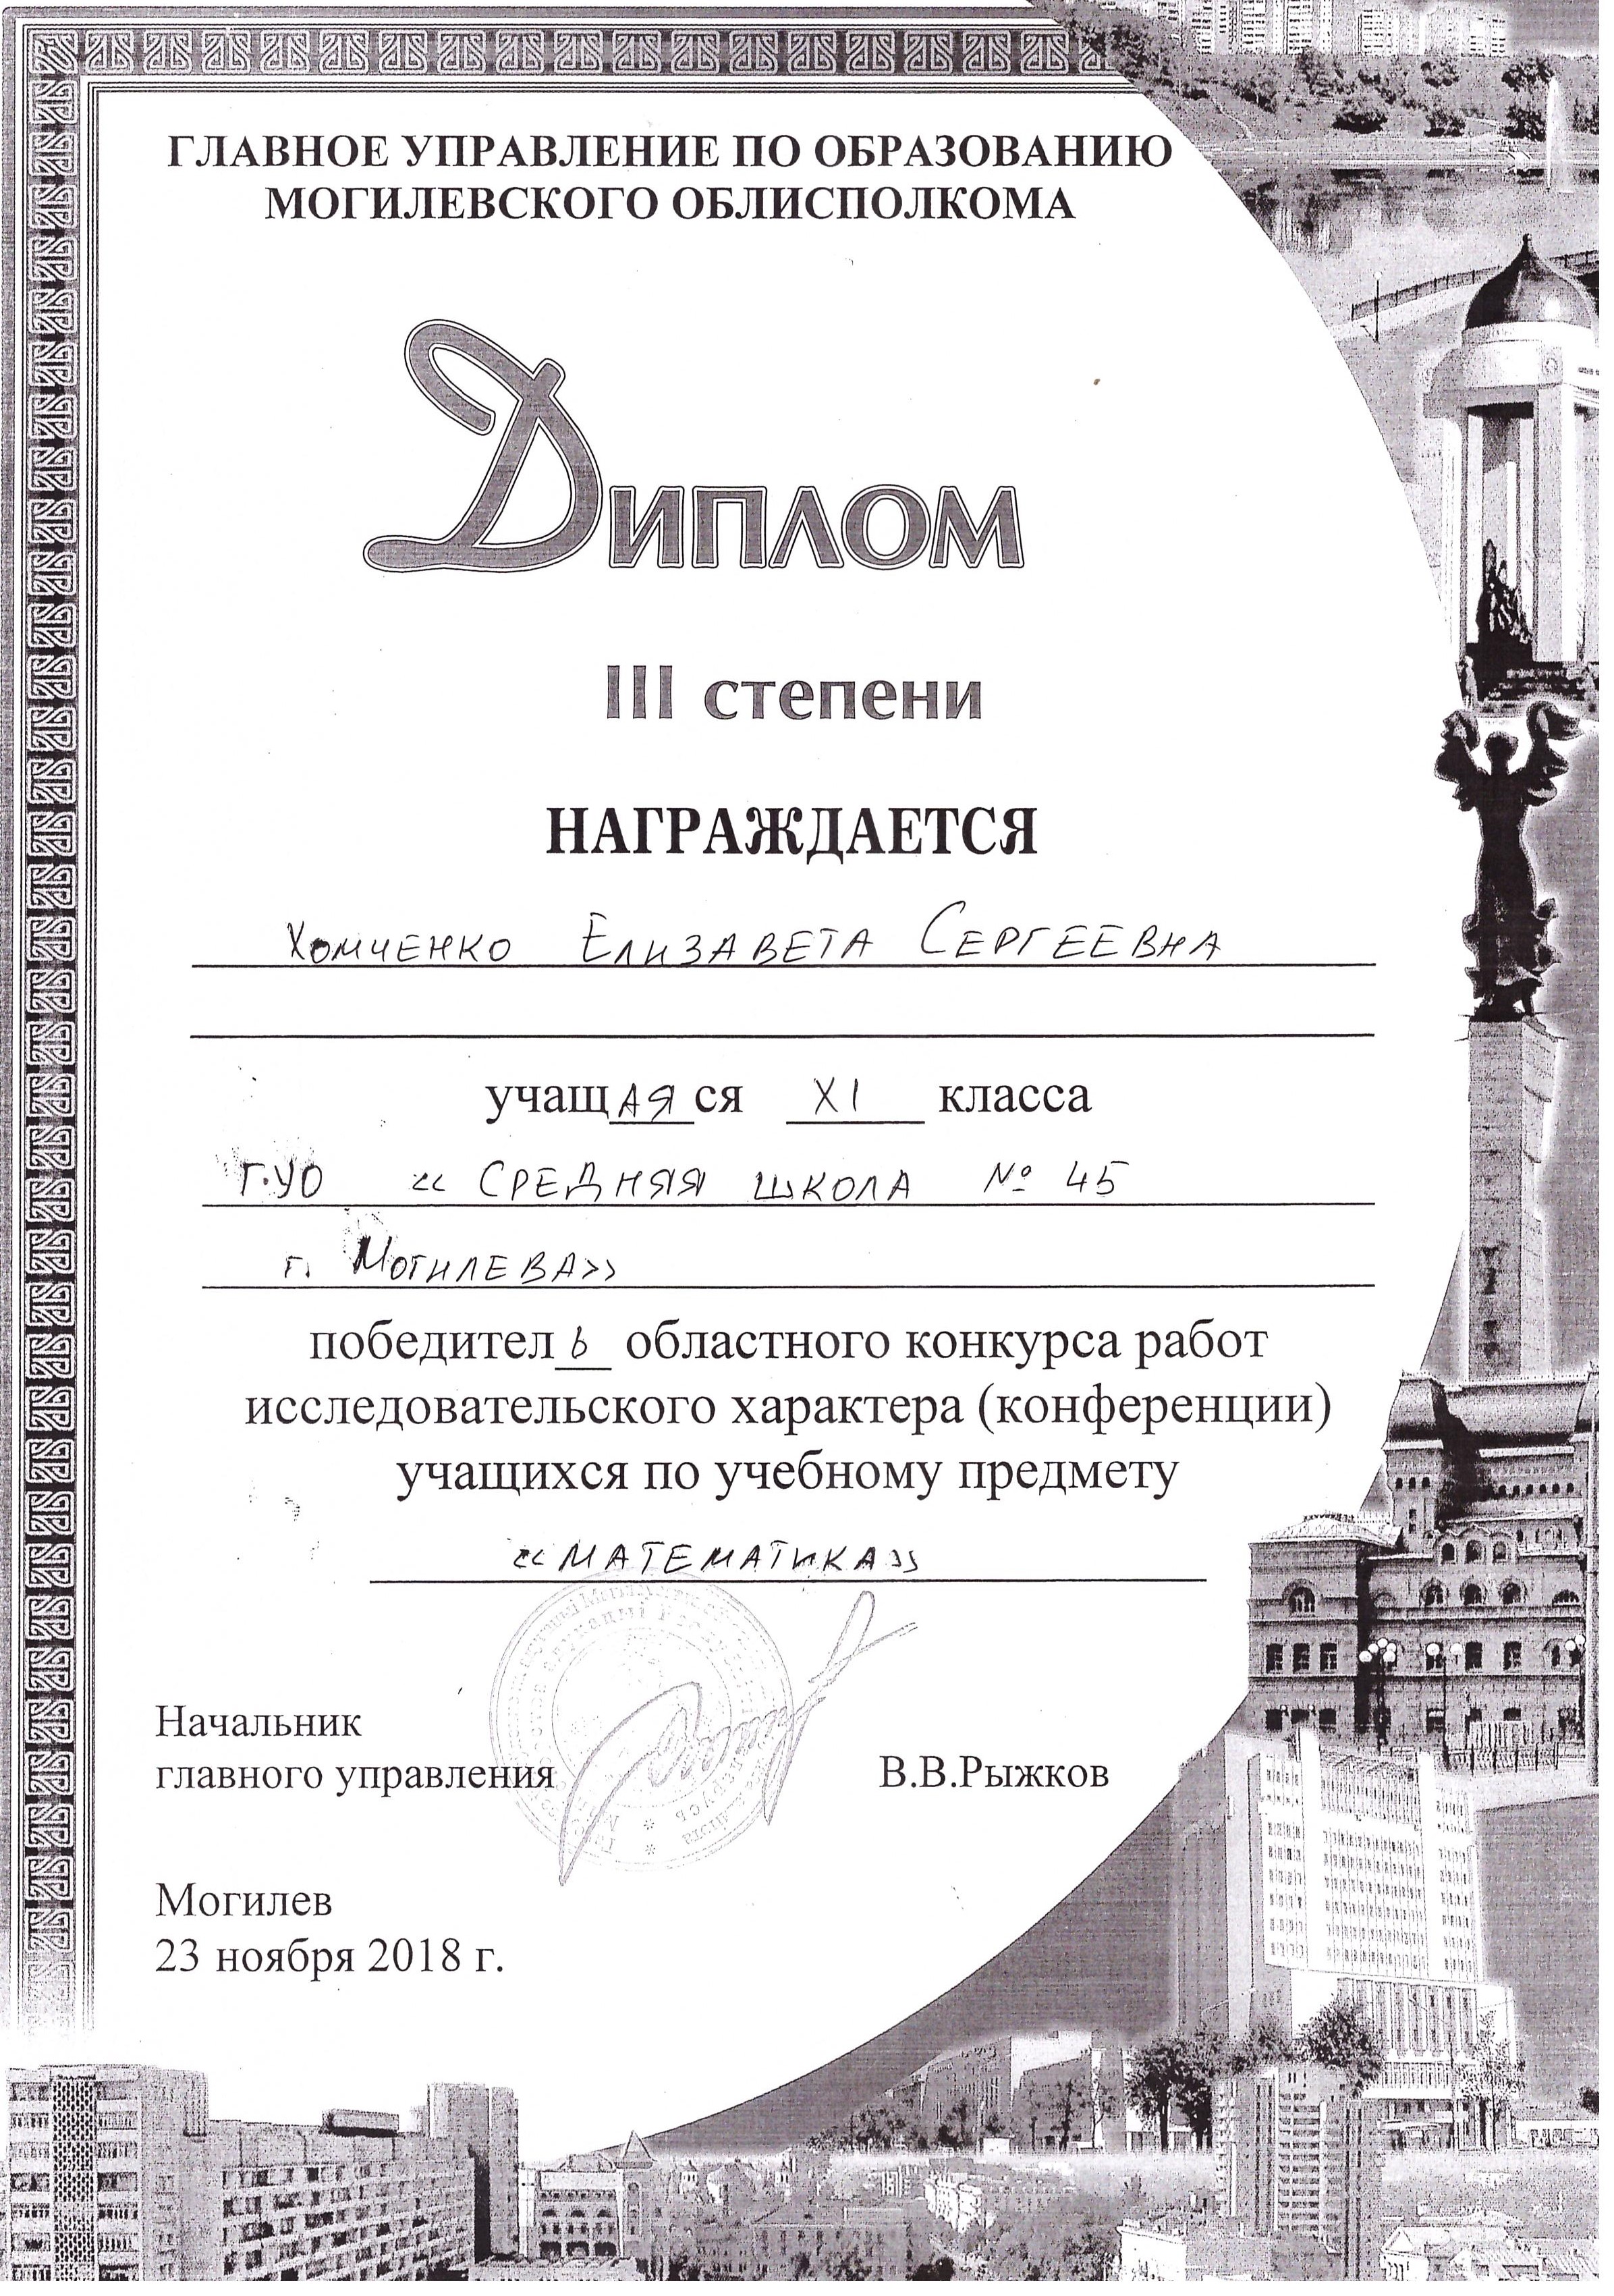 ГЛАВНОЕ УПРАВЛЕНИЕ ПО ОБРАЗОВАНИЮ
МОГИЛЕВСКОГО ОБЛИСПОЛКОМА
Диплом
III степени
НАГРАЖДАЕТСЯ
Хомченко Елизавета Сергеевна
учащаяся XI класса
Г.УО «Средняя школа № 45
г. Могилева»
победитель областного конкурса работ
исследовательского характера (конференции)
учащихся по учебному предмету
«Математика»
Начальник
главного управления В.В.Рыжков
Могилев
23 ноября 2018 г.